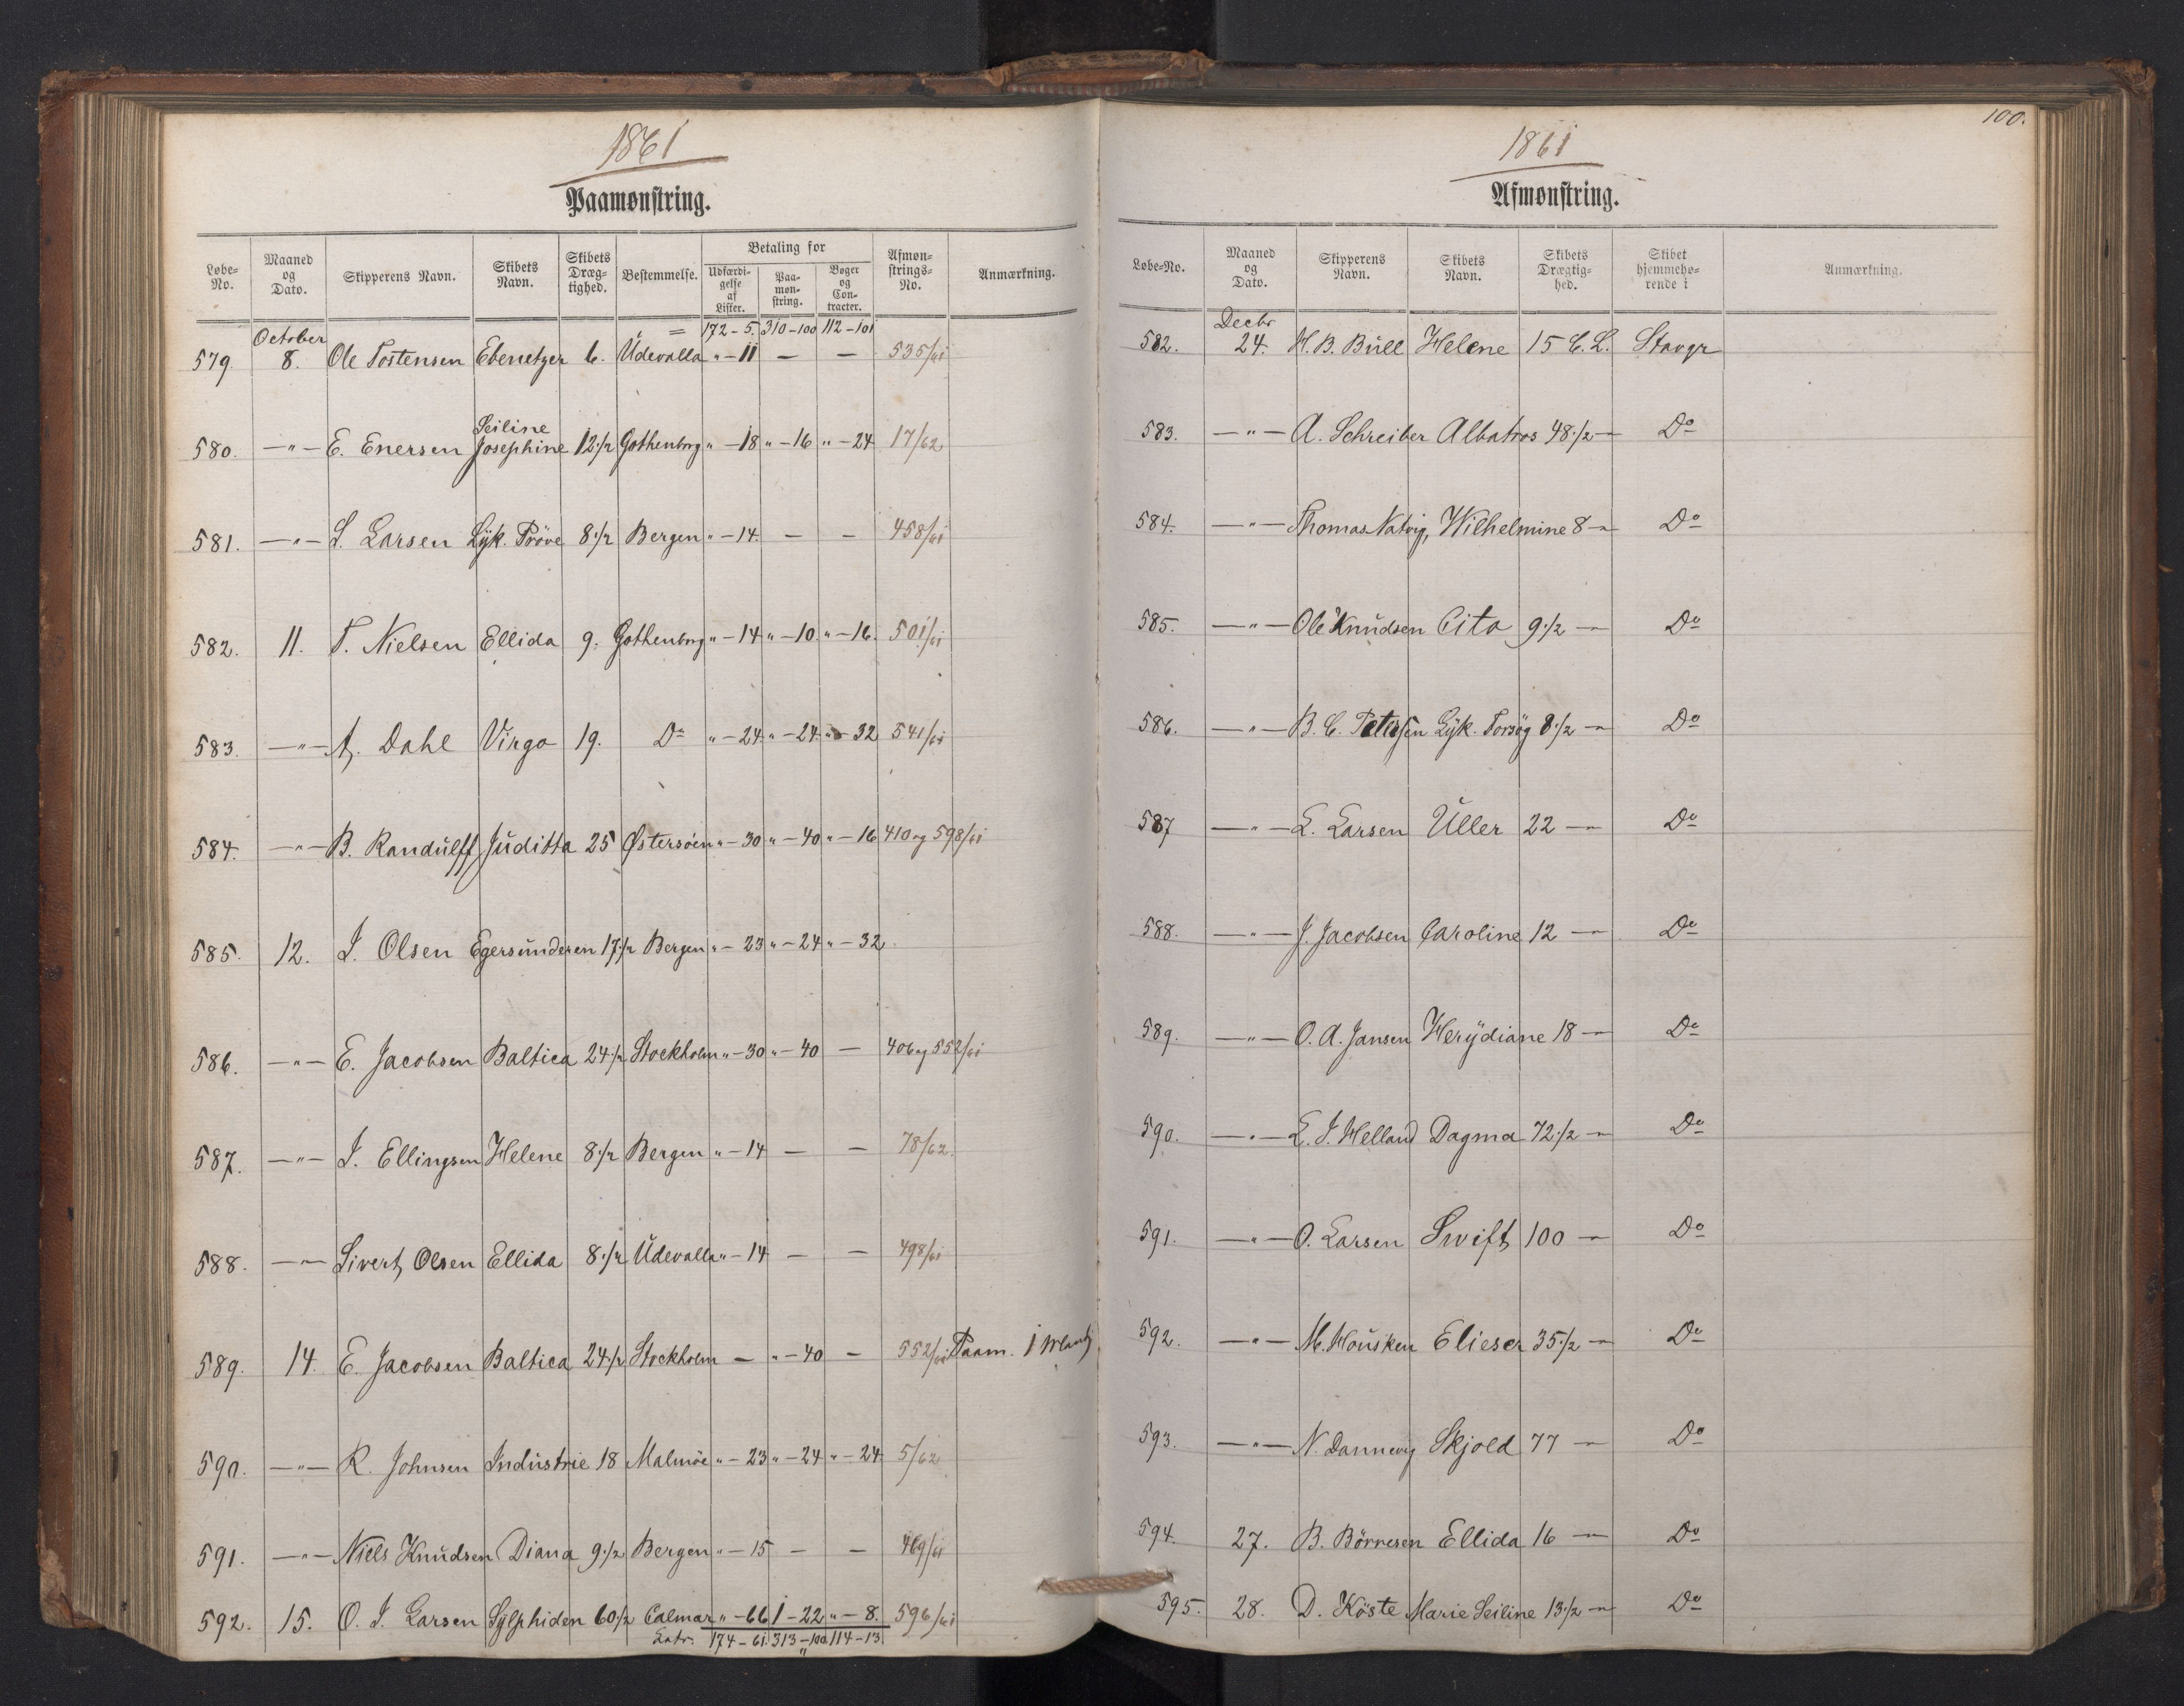 1861
Paamønstring.
Løbe-No. | Maaned og Dato. | Skipperens Navn. | Skibets Navn. | Skibets Dræg-tighed. | Bestemmelse. | Betaling for | Udfærdi-gelse af Lister. | Paa-møn-string. | Bøger og Con-tracter. | Afmøn-strings-No. | Anmærkning.
= 172-5. 310-100 112-101
October
579. 8. Ole Tostensen Ebenetzer 6. Udevalla " - 11 — — 535/61
Seiline
580. —"— E. Enersen Josephine 12 1/2 Gothenborg " - 18 " - 16 " - 24 17/62
581. —"— S. Larsen Lyk. Prøve 8 1/2 Bergen " - 14. — — 458/61
582. 11. T. Nielsen Ellida 9. Gothenborg " - 14 " - 10. " - 16. 501/61
583. —"— A. Dahl Virgo 19. Do " - 24. " - 24. " - 32 541/61
584. —"— B. Randulff Juditta 25 Østersöen " - 30 " - 40 " - 16 410 og 598/61
585. 12. J. Olsen Egersunderen 17 1/2 Bergen " - 23 " - 24 " - 32
586. —"— E. Jacobsen Baltica 24 1/2 Stockholm " - 30 " - 40 — 406 og 552/61
587. —"— J. Ellingsen Helene 8 1/2 Bergen " - 14 — — 78/62.
588. —"— Sivert Olsen Ellida 8 1/2 Udevalla " - 14 — — 498/61
589. 14. E. Jacobsen Baltica 24 1/2 Stockholm — " - 40 — 552/61 Paam. 1
590. —"— R. Johnsen Industrie 18 Malmöe " - 23 " - 24 " - 24. 5/62
591. —"— Niels Knudsen Diana 9 1/2 Bergen " - 15 — — 469/61
592. 15. O. J. Larsen Sylphiden 60 1/2 Calmar " - 66 1 - 22 " - 8. 596/61
Latr. 174-61. 313-100 114-13.
100.
1861
Afmønstring.
Løbe-No. | Maaned og Dato. | Skipperens Navn. | Skibets Navn. | Skibets Drægtig-hed. | Skibet hjemmehø-rende i | Anmærkning.
Decbr
582. 24. H. B. Bull Helene 15 C. L. Stavgr
583. —"— A. Schreiber Albatros 48 1/2 — Do
584. —"— Thomas Natvig, Wilhelmine 8 — Do
585. —"— Ole Knudsen Cito 9 1/2 — Do
586. —"— B. C. Petersen Lyk. Forsög 8 1/2 — Do
587 —"— L. Larsen Uller 22 — Do
588. —"— J. Jacobsen Caroline 12 — Do
589. —"— O. A. Jansen Herÿdiane 18 — Do
590. —"— L. J. Helland Dagma 72 1/2 — Do
591. —"— O. Larsen Swift 100 — Do
592. —"— M. Housken Elieser 35 1/2 — Do
593. —"— N. Dannevig Skjold 77 — Do
594. 27. B. Börresen Ellida 16 — Do
595. 28. D. Köste Marie Seiline 13 1/2 — Do